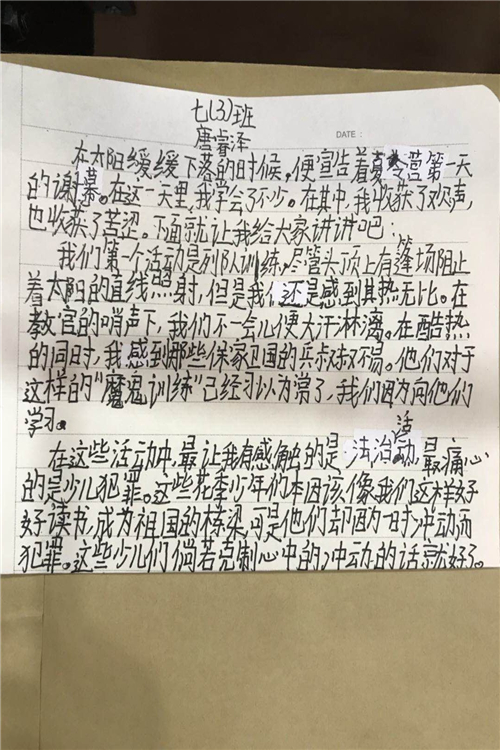 七(3)班
唐睿泽
DATE:
在太阳缓缓下落的时候,便宣告着夏令营第一天
的谢幕。在这一天里,我学会了不少。在其中,我收获了欢声,
也收获了苦涩。下面就让我给大家讲讲吧:
我们第一个活动是列队训练,尽管头顶上有篷场阻止
着太阳的直线照射,但是我们还是感到其热无比。在
教官的哨声下,我们不一会儿便大汗淋漓。在酷热
的同时,我感到那些保家卫国的兵叔叔不易。他们对于
这样的“魔鬼训练”已经习以为常了,我们因为向他们
学习。
活
在这些活动中,最让我有感触的是法治动,最痛心
的是少儿犯罪。这些花季少年们本因该像我们这样好
好读书,成为祖国的栋梁,可是他们却因为一时冲动而
犯罪。这些少儿们倘若克制心中的冲动的话就好了。